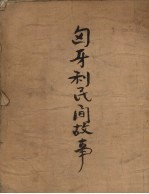 匈牙利民间故事